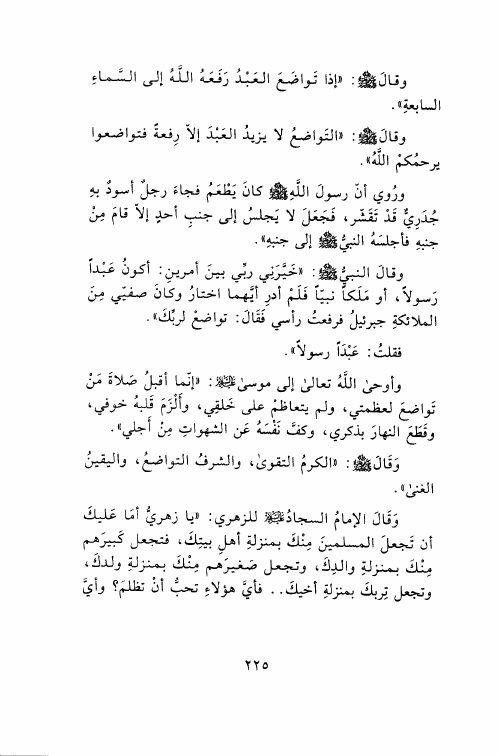 وقالَ ﷺ: «إذا تَواضَعَ العَبْدُ رَفَعَهُ اللَّهُ إلى السَّماءِ
السابعةِ».
وقالَ ﷺ: «التَواضعُ لا يزيدُ العَبْدَ إلاّ رِفعةً فتواضعوا
يرحمُكمْ اللَّهُ».
ورُوي أنّ رسولَ اللَّهِ ﷺ كانَ يَطْعَمُ فجاءَ رجلٌ أسودٌ بهِ
جُدَرِيٌّ قَدْ تَقَشّر، فَجَعَلَ لا يَجلسُ إلى جنبِ أحدٍ إلاّ قامَ مِنْ
جنبهِ فأجلسَهُ النبيُّ ﷺ إلى جنبهِ».
وقالَ النبيُّ ﷺ: «خَيَّرَني ربّي بينَ أمرينِ: أكونُ عَبْداً
رَسولاً، أو مَلَكاً نبيّاً فَلَمْ أدرِ أيَّهما اختارُ وكانَ صفيّي مِنَ
الملائكةِ جبرئيلُ فرفعتُ رأسي فَقَالَ: تواضعْ لربِّكَ».
فقلتُ: عَبْدَاً رسولاً».
وأوحىٰ اللَّهُ تعالىٰ إلى موسىٰ: «إنّما أقبلُ صَلاةَ مَنْ
تَواضعَ لعظمتي، ولم يتعاظمْ على خَلقِي، وألْزَمَ قلبهُ خوفي،
وقَطَعَ النهارَ بذكري، وكفَّ نَفْسَهُ عَن الشهواتِ مِنْ أجلي».
وَقَالَ ﷺ: «الكرمُ التقوىٰ، والشرفُ التواضعُ، واليقينُ
الغنىٰ».
وَقَالَ الإمامُ السجادُ للزهري: «يا زهريُّ أمَا عَليكَ
أن تَجعلَ المسلمينَ مِنْكَ بمنزلةِ أهلِ بيتِكَ، فتجعل كَبيرَهم
مِنْكَ بمنزلةِ والدِكَ، وتجعل صَغيرَهم مِنْكَ بمنزلةِ ولدكَ،
وتجعل تِربكَ بمنزلةِ أخيكَ.. فأيَّ هؤلاءِ تحبُّ أنْ تظلمَ؟ وأيَّ
٢٢٥